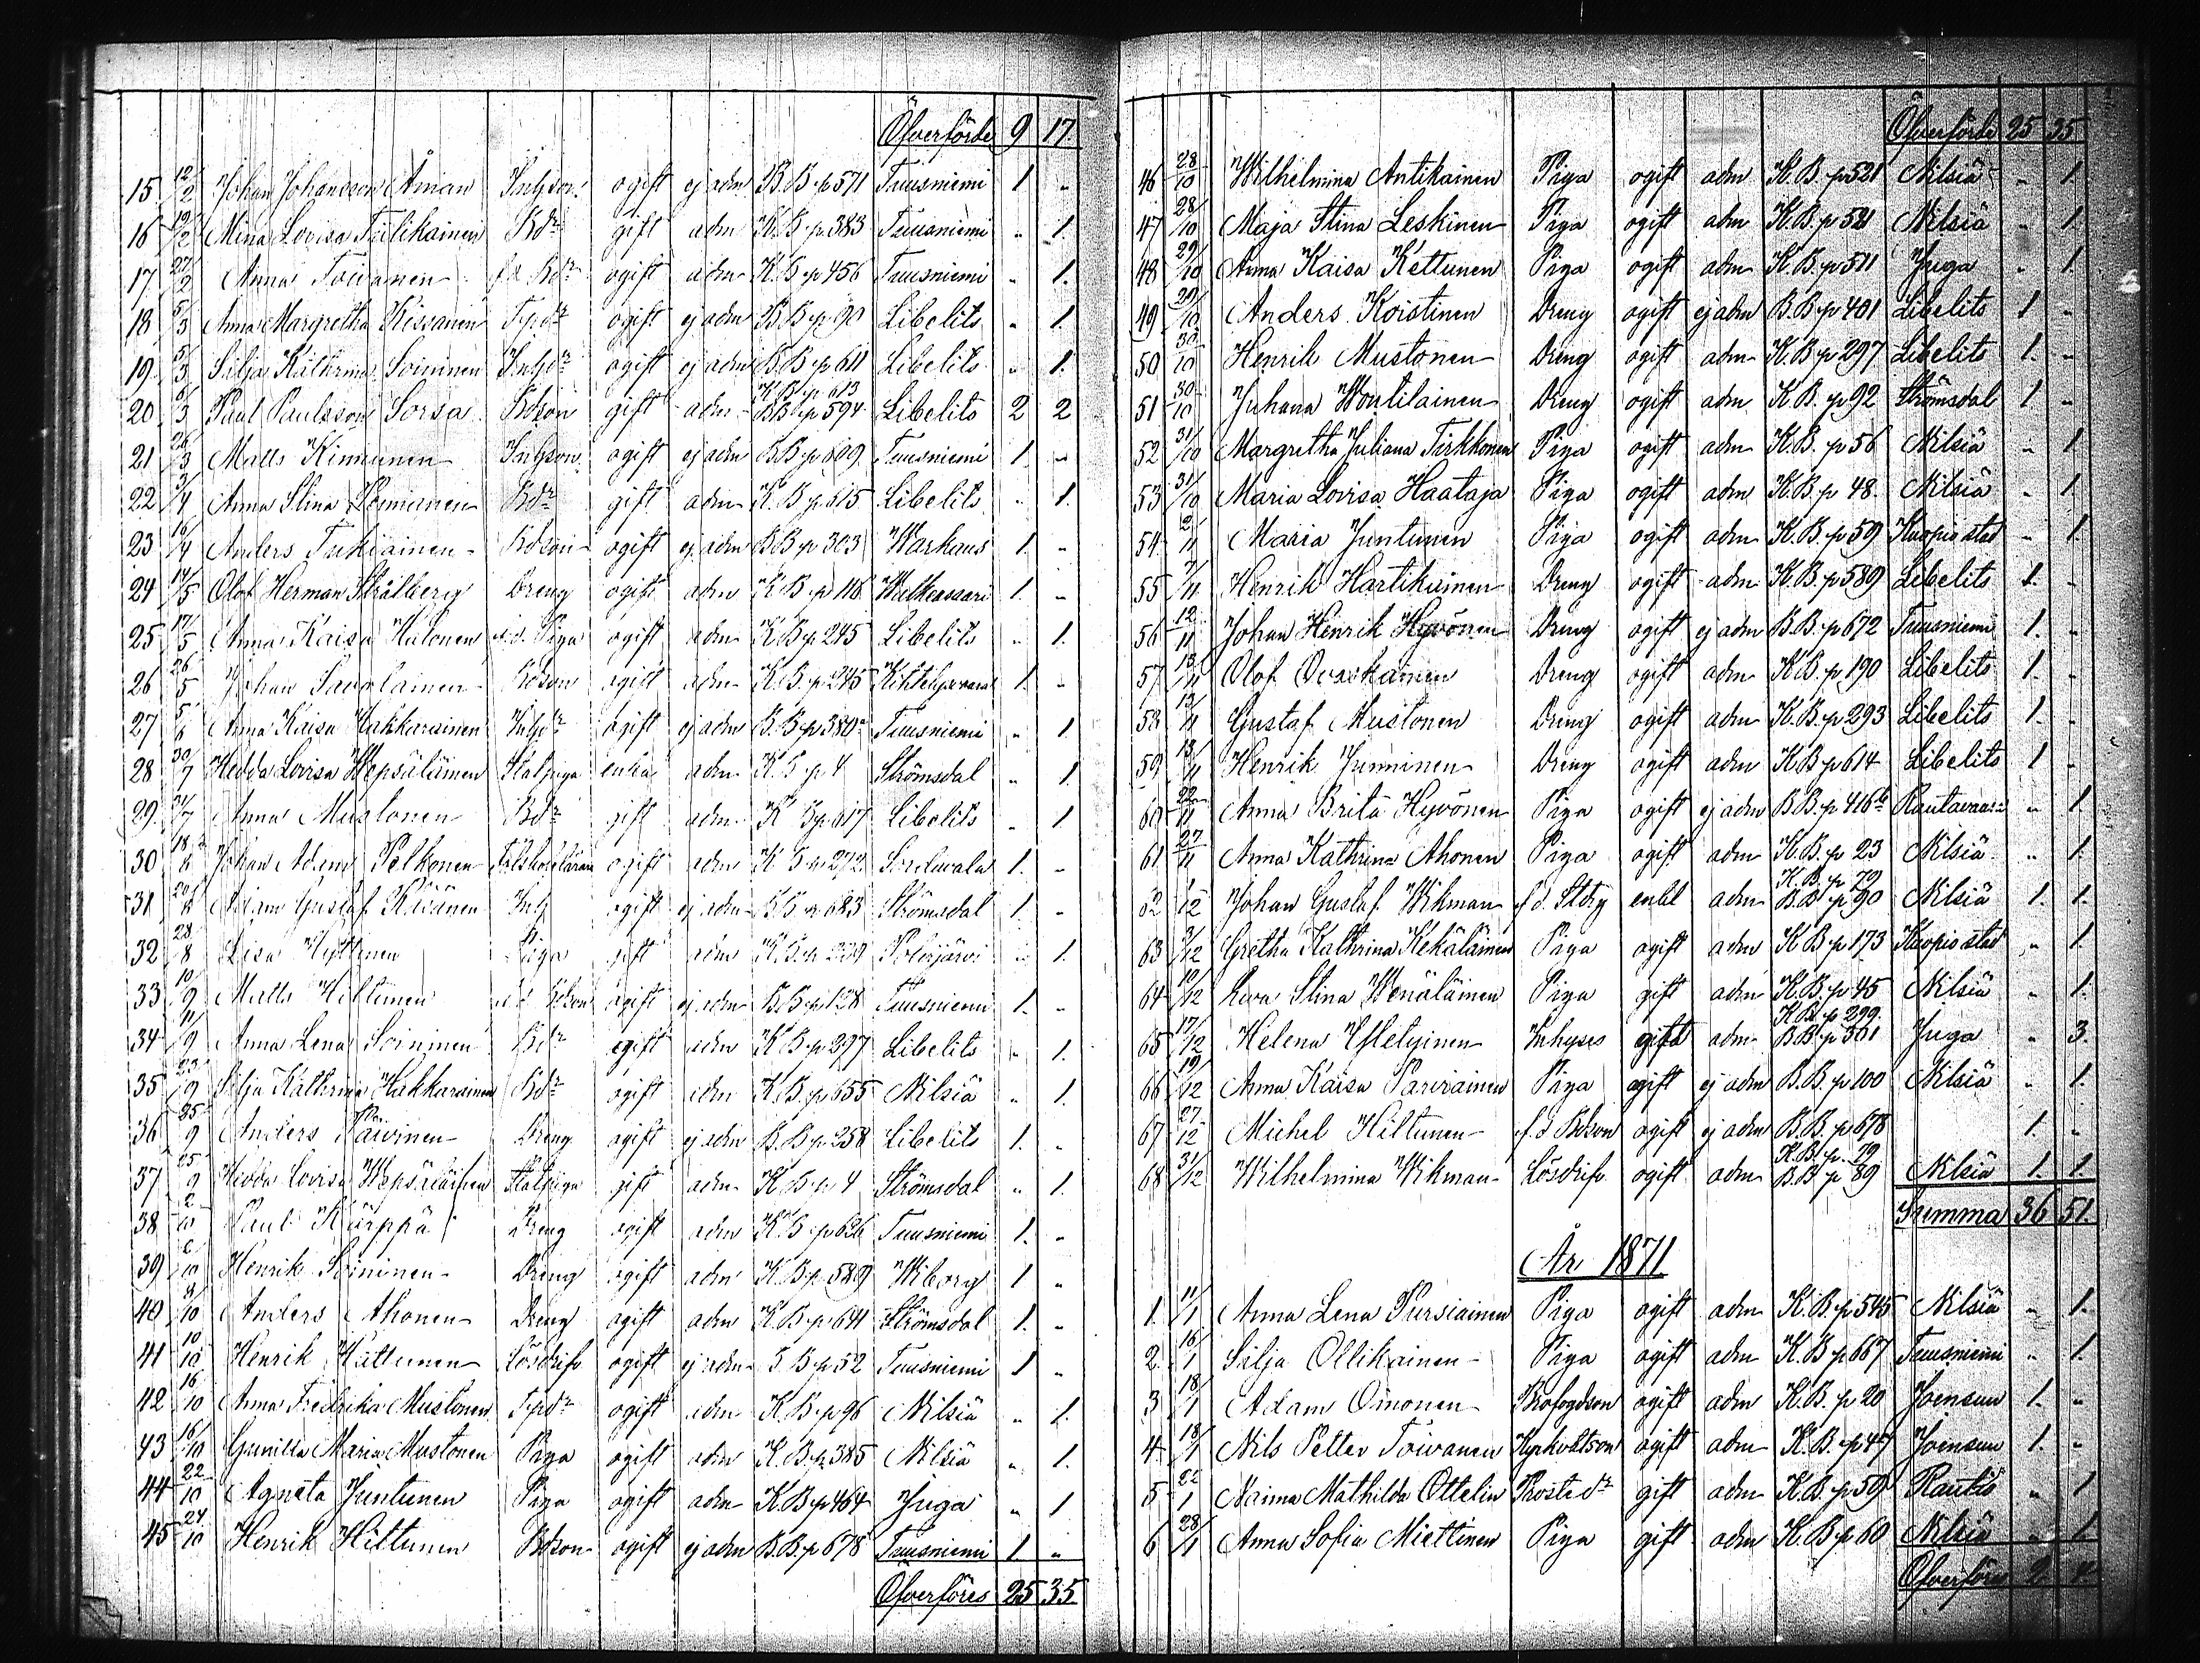 Öfverförde 9 17.
15 12/2 Johan Johansson Åman Inhyson ogift ej adm B.B. p 571 Tuusniemi 1. "
16 19/2 Mina Lovisa Tulikainen Bdr gift adm K.B. p 383 Tuusniemi " 1.
17 27/2 Anna Toivanen f.d. Bdr ogift adm K.B. p 456 Tuusniemi " 1.
18 5/3 Anna Margretha Kisvanen Tpdr ogift ej adm B.B. p 90 Libelits " 1.
19 5/3 Silja Kathrina Soininen Inhdr ogift ej adm B.B. p 611 Libelits " 1.
K.B. p 613
20 6/3 Paul Paulsson Sorsa Bdson gift adm B.B. p 594 Libelits 2 2
21 26/3 Matts Kinnunen Inhyson ogift ej adm B.B. p 609 Tuusniemi 1. "
22 3/4 Anna Stina Bdr gift adm K.B. p 615 Libelits " 1.
23 16/4 Anders Tukiainen Bdson ogift ej adm B.B. p 303 Warkaus 1. "
24 14/5 Olof Herman Strålberg Dreng ogift adm K.B. p 116 Walkeasaari 1. "
25 17/5 Anna Kaisa Hutonen Piga ogift adm K.B. p 245 Libelits " 1.
26 26/5 Johan Savolainen Bdson ogift adm K.B. p 245 Kihtelysvaara 1. "
27 5/6 Anna Kaisa Hakkarainen Inhdr ogift ej adm B.B. p 380 Tuusniemi " 1
28 30/7 Hedda Lovisa Wepsäläinen Statpiga enka adm K.B. p 4 Strömsdal " 1.
29 31/7 Anna Mustonen Bdr gift adm K.B. p 617 Libelits " 1.
30 18/8 Johan Adam Pelkonen Folkskolelärare ogift adm K.B. p 272 Sordavala 1. "
31 20/8 Adam Gustaf Räsänen Inh ogift ej adm B.B. p 683 Strömsdal 1. "
32 28/8 Lisa Hyttinen Piga gift adm K.B. p 239 Polvijärvi " 1.
33 10/9 Matts Hiltunen f.d. Bdson ogift ej adm B.B. p 138 Tuusniemi 1. "
34 11/9 Anna Lena Soininen Bdr ogift adm K.B. p 297 Libelits " 1.
35 23/9 Silja Kathrina Hakkarainen Bdr ogift adm K.B. p 655 Nilsiä " 1.
36 25/9 Anders Päivinen Dreng ogift ej adm B.B. p 258 Libelits 1. "
37 25/9 Hedda Lovisa Wepsäläinen Statpiga gift adm K.B. p 4 Strömsdal " 1.
38 2/10 Paul Kärppä Dreng ogift adm K.B. p 626 Tuusniemi 1. "
39 6/10 Henrik Soininen Dreng ogift adm K.B. p 589 Wiborg 1 "
40 8/10 Anders Ahonen Dreng ogift adm K.B. p 641 Strömsdal 1. "
41 10/10 Henrik Hältunen Lösdrif ogift ej adm B.B. p 52 Tuusniemi 1 "
42 16/10 Anna Fredrika Mustonen Tpdr ogift adm K.B. p 96 Nilsiä " 1.
43 16/10 Gunilla Maria Mustonen Piga ogift adm K.B. p 385 Nilsiä " 1.
44 22/10 Agneta Juntunen Piga ogift adm K.B. p 464 Juga " 1
45 24/10 Henrik Hiltunen Bdson ogift ej adm B.B. p 678 Tuusniemi 1 "
Öfverföres 25 35.
Öfverförde 25 35
46 28/10 Wilhelmina Antikainen Piga ogift adm K.B. p 521 Nilsiä " 1.
47 28/10 Maja Stina Leskinen Piga ogift adm K.B. p 521 Nilsiä " 1.
48 29/10 Anna Kaisa Kettunen Piga ogift adm K.B. p 511 Juga " 1.
49 29/10 Anders Koistinen Dreng ogift ej adm B.B. p 401 Libelits 1 "
50 30/10 Henrik Mustonen Dreng ogift adm K.B. p 297 Libelits 1. "
51 30/10 Juhana Woutilainen Dreng ogift adm K.B. p 92 Strömsdal 1. "
52 31/10 Margretha Juliana Tirkkonen Piga ogift adm K.B. p 56 Nilsiä " 1
53 31/10 Maria Lovisa Haataja Piga ogift adm K.B. p 48. Nilsiä " 1.
54 2/11 Maria Juntunen Piga ogift adm K.B. p 59 Kuopio stad " 1.
55 7/11 Henrik Hartikainen Dreng ogift adm K.B. p 589 Libelits 1. "
56 12/11 Johan Henrik Hyvönen Dreng ogift ej adm B.B. p 672 Tuusniemi 1. "
57 13/11 Olof Ovaskainen Dreng ogift adm K.B. p 190 Libelits 1. "
58 13/11 Gustaf Mustonen Dreng ogift adm K.B. p 293 Libelits 1. "
59 13/11 Henrik Junninen Dreng ogift adm K.B. p 614 Libelits 1 "
60 22/11 Anna Brita Hyvönen Piga ogift ej adm B.B. p 416 b Rautavaara " 1.
61 27/11 Anna Kathrina Ahonen Piga ogift adm K.B. p 23 Nilsiä " 1.
K.B. p 79
62 1/12 Johan Gustaf Wikman f.d. Stdrg enkl adm B.B. p 90 Nilsiä 1. 1.
63 3/12 Gretha Kathrina Kekäläinen Piga ogift adm K.B. p 173 Kuopio stad " 1.
64 10/12 Eeva Stina Wenäläinen Piga gift adm K.B. p 45 Nilsiä " 1.
K.B. p 299.
65 17/12 Helena Ifletyinen Inhyses gift adm B.B. p 361 Juga " 3.
66 19/12 Anna Kaisa Parviainen Piga ogift ej adm B.B. p 100 Nilsiä " 1.
67 27/12 Michel Hiltunen f.d. Bdson ogift ej adm B.B. p 678 1. "
K.B. p. 79
68 31/12 Wilhelmina Wikman Lösdrif ogift adm B.B. p 89 Nilsiä 1. 1.
Summa 36 51.
År 1871
1. 11/1 Anna Lena Pursiainen Piga ogift adm K.B. p 545 Nilsiä " 1.
2. 16/1 Silja Ollikainen Piga ogift adm K.B. p 667 Tuusniemi " 1.
3 18/1 Adam Oinonen Brofogdson ogift adm K.B. p 20 Joensuu 1. "
4 18/1 Nils Petter Toivanen Kyrkvaktson ogift adm K.B. p 47 Joensuu 1. "
5 22/1 Naima Mathilda Ottelin Prostedr gift adm K.B. p 59 Rautis " 1
6 28/1 Anna Sofia Miettinen Piga gift adm K.B. p 60 Nilsiä " 1
Öfverföres 2 4